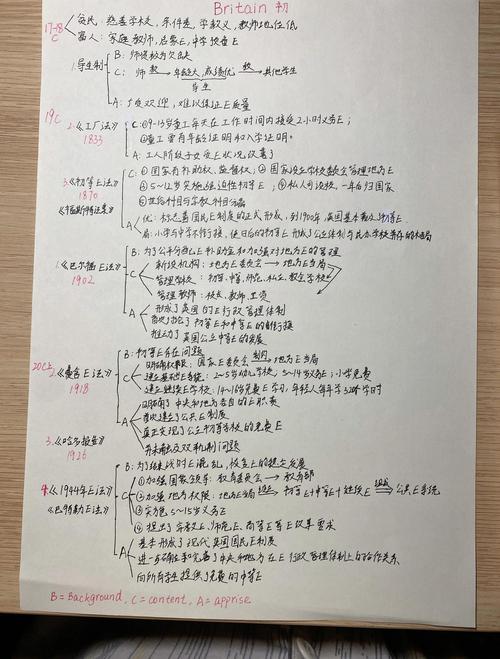 Britain 初
17-18C
贫民：慈善学校，条件差，学教义，教师地位低
富人：家庭教师，启蒙E，中学预备E
19C
1.导生制
B：师资极为欠缺
C：师 教→ 年龄大，成绩优 教→ 其他学生
导生
A：广受欢迎，难以保证E质量
2.《工厂法》
1833
C：①9-13岁童工每天在工作时间内接受2小时义务E；
②童工要有年龄证明和入学证明。
A：工人阶级子女受E状况改善了
3.《初等E法》
1870
《福斯特法案》
C
①国家有补助权、监督权；②国家设立学校委员会管理地方E
④5~12岁实施强迫性初等E；⑤私人可设校，一年后归国家
⑥世俗科目与宗教科目分离
A
优：标志着国民E制度的正式形成，到1900年，英国基本普及了初等E
局：小学与中学不衔接，使旧的初等E形成了公立体制与民办学校并存的格局
20C上
1.《巴尔福E法》
1902
B：为了公平分配E补助金和加强对地方E的管理
C
新设机构：地方E委员会→地方E当局
管理学校：初等、中等、师范、私立、教会学校
管理教师：校点、教师、工资
A
形成了英国的E行政管理体制
首次讨论了初等E和中等E的衔接
推动了英国公立中等E的发展
2.《费舍E法》
1918
B：初等E存在问题
C
明确权限：国家E委员会 制约→ 地方E当局
建立基础E系统：2~5岁幼儿学校，5~14岁义务E；小学免费
建立继续E学校：14~16岁免费E学习，年轻人每年学320学时
A
明确了中央和地方各自的E职责
首次建立了公共E制度
真正实现了公立初等学校的免费E
并未触及双轨制问题
3.《哈多报告》
1926
4.《1944年E法》
《巴特勒E法》
B：为了结束战时E混乱，恢复E的稳定发展
C
①加强国家领导：教育委员会→教育部
②加强地方权限：地方E当局→初等E中等E十继续E 组成→公共E系统
③实施5~15岁义务E
④提出了宗教E、师范E、高等E等E改革要求
A
基本形成了现代英国国民E制度
进一步确立和完善了中央和地方在E行政管理体制上的合作关系
向所有学生提供了免费的中等E
B = Background, C = content, A = apprise